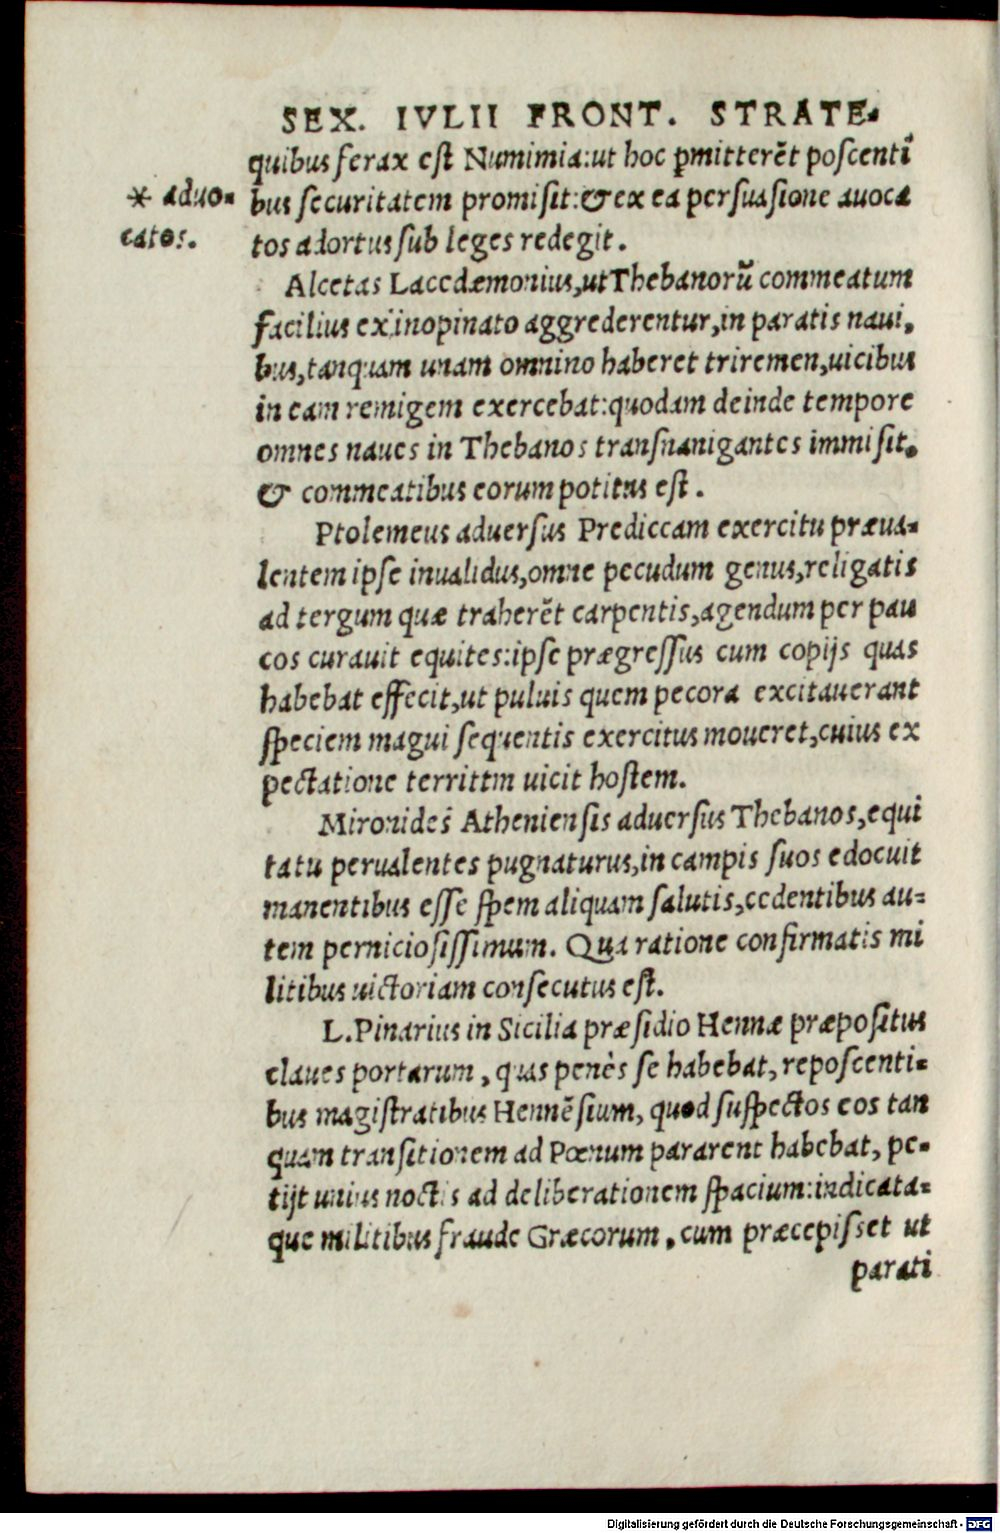 SEX. IVLII FRONT. STRATE-
quibus ferax est Numimia:ut hoc pmitterēt poscenti
* aduo-
bus securitatem promisit:& ex ea persuasione auoca
catos.
tos adortus sub leges redegit.
Alcetas Lacedæmonius,ut Thebanorū commeatum
facilius ex inopinato aggrederentur,in paratis naui,
bus,tanquam unam omnino haberet triremen,uicibus
in eam remigem exercebat:quodam deinde tempore
omnes naues in Thebanos transnanigantes immisit.
& commeatibus eorum potitus est.
Ptolemeus aduersus Prediccam exercitu præua-
lentem ipse inualidus,omne pecudum genus,religatis
ad tergum quæ traherēt carpentis,agendum per pau
cos curauit equites:ipse prægressus cum copijs quas
habebat effecit,ut puluis quem pecora excitauerant
speciem magui sequentis exercitus moueret,cuius ex
pectatione territtm uicit hostem.
Mironides Atheniensis aduersus Thebanos,equi
tatu perualentes pugnaturus,in campis suos edocuit
manentibus esse spem aliquam salutis,cedentibus au-
tem perniciosissimum. Qua ratione confirmatis mi
litibus uictoriam consecutus est.
L.Pinarius in Sicilia præsidio Hennæ præpositus
claues portarum, quas penès se habebat, reposcenti-
bus magistratibus Hennēsium, quod suspectos eos tan
quam transitionem ad Pœnum pararent habebat, pe-
tijt unius noctis ad deliberationem spacium:indicata-
que militibus fraude Græcorum, cum præcepisset ut
parati
Digitalisierung gefördert durch die Deutsche Forschungsgemeinschaft - DFG